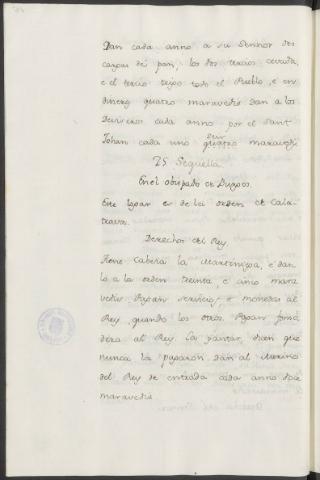 Dan cada anno a su Senhor dos
cargas de pan, los dos tercios cevada,
e el tercio trigo todo el Pueblo, e en
dineros quatro maravedis dan a los
deviseros cada anno por el Sant
Johan cada uno quatro maravedis
seis
25 Sequella
En el obispado de Burgos.
Este logar es de lei orden de Cala-
trava.
Derechos del Rey.
tiene cabeza la martiniega, e dan
lo a la orden treinta, e cinco mara
vedis Pagan servicios, e monedas al
Rey quando los otros Pagan
al Rey La yantar, dicen que
nunca la pagaron dan al Merino
del Rey de entrada cada anno doce
maravedis